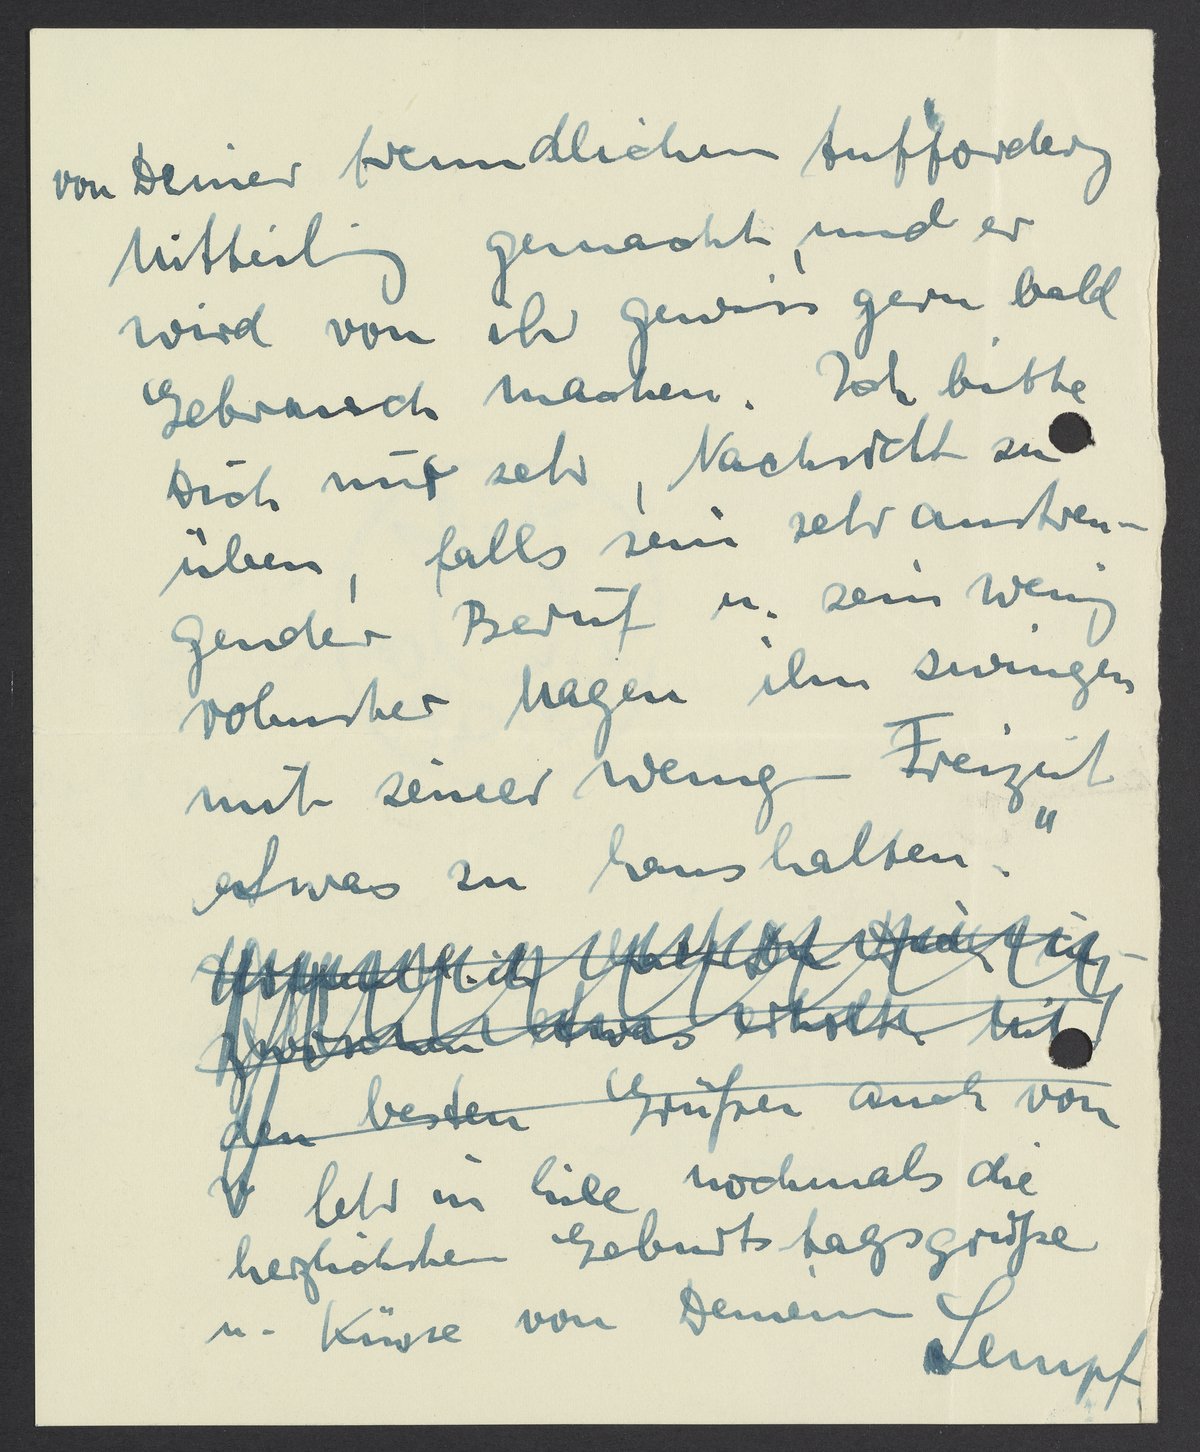 von Deiner freundlichen Aufforderg
Mitteilung gemacht, und er
wird von ihr gewiss gern bald
Gebrauch machen. Ich bitte
Dich nur sehr, Nachsicht zu
üben, falls sein sehr anstren-
gender Beruf u. sein wenig
robuster Magen ihn zwingen
mit seiner wenig Freizeit
etwas zu haushalten."
Hoffentlich hast Du Dich in-
zwischen etwas erholt. Mit
den besten Grüßen auch von
sehr in Eile nochmals die
herzlichsten Geburtstagsgrüße
u. Küsse von Deinem